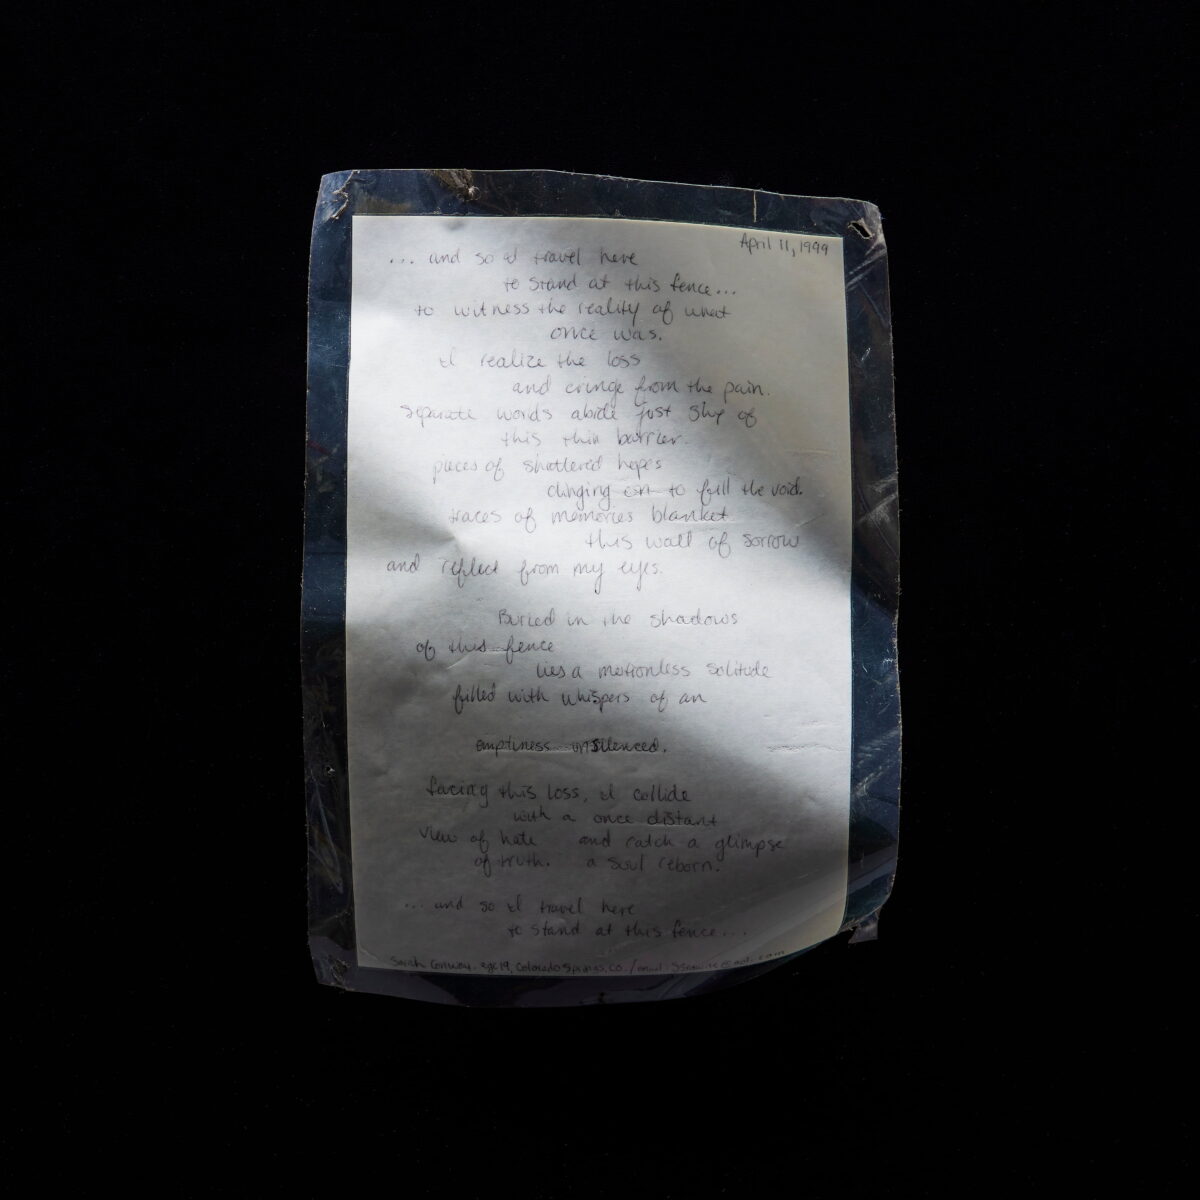 April 11, 1999
... and so I travel here
to stand at this fence...
to witness the reality of what
once was.
I realize the loss
and cringe from the pain.
separate words abide just shy of
this thin barrier.
pieces of shattered hopes
clinging to fill the void.
traces of memories blanket
this wall of sorrow
and reflect from my eyes.
Buried in the shadows
of this fence
lies a motionless solitude
filled with whispers of an
emptiness unsilenced.
facing this loss, I collide
with a once distant
view of hate and catch a glimpse
of truth. a soul reborn.
... and so I travel here
to stand at this fence...
Sarah Conway. age 19, Colorado Springs, CO. / email: